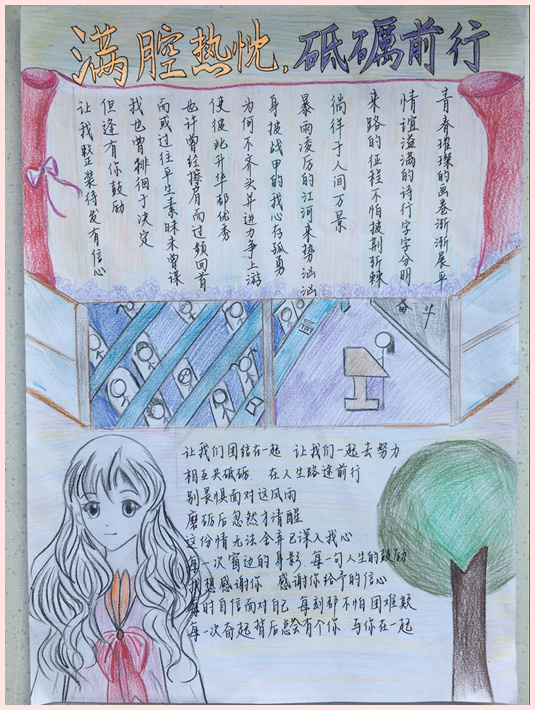 满腔热忱,砥砺前行
青春璀璨的画卷渐渐展平
情谊溢满的诗行字字分明
来路的征程不怕披荆斩棘
徜徉于人间万景
暴雨凌厉的江河来势汹汹
身披战甲的我心存孤勇
为何不齐头并进力争上游
使彼此升华都优秀
也许曾经擦肩而过频回首
而或过往平生素昧未曾谋
我也曾徘徊于决定
但逢有你鼓励
让我整装待发有信心
奋斗
让我们团结在一起 让我们一起去努力
相互共砥砺 在人生路途前行
别畏惧面对这风雨
磨砺后忽然才清醒
这份情无法舍弃已深入我心
每一次窗边的身影 每一句人生的鼓励
我想感谢你 感谢你给予的信心
每时自信面对自己 每刻都不怕困难欺
每一次奋起背后总会有个你 与你在一起